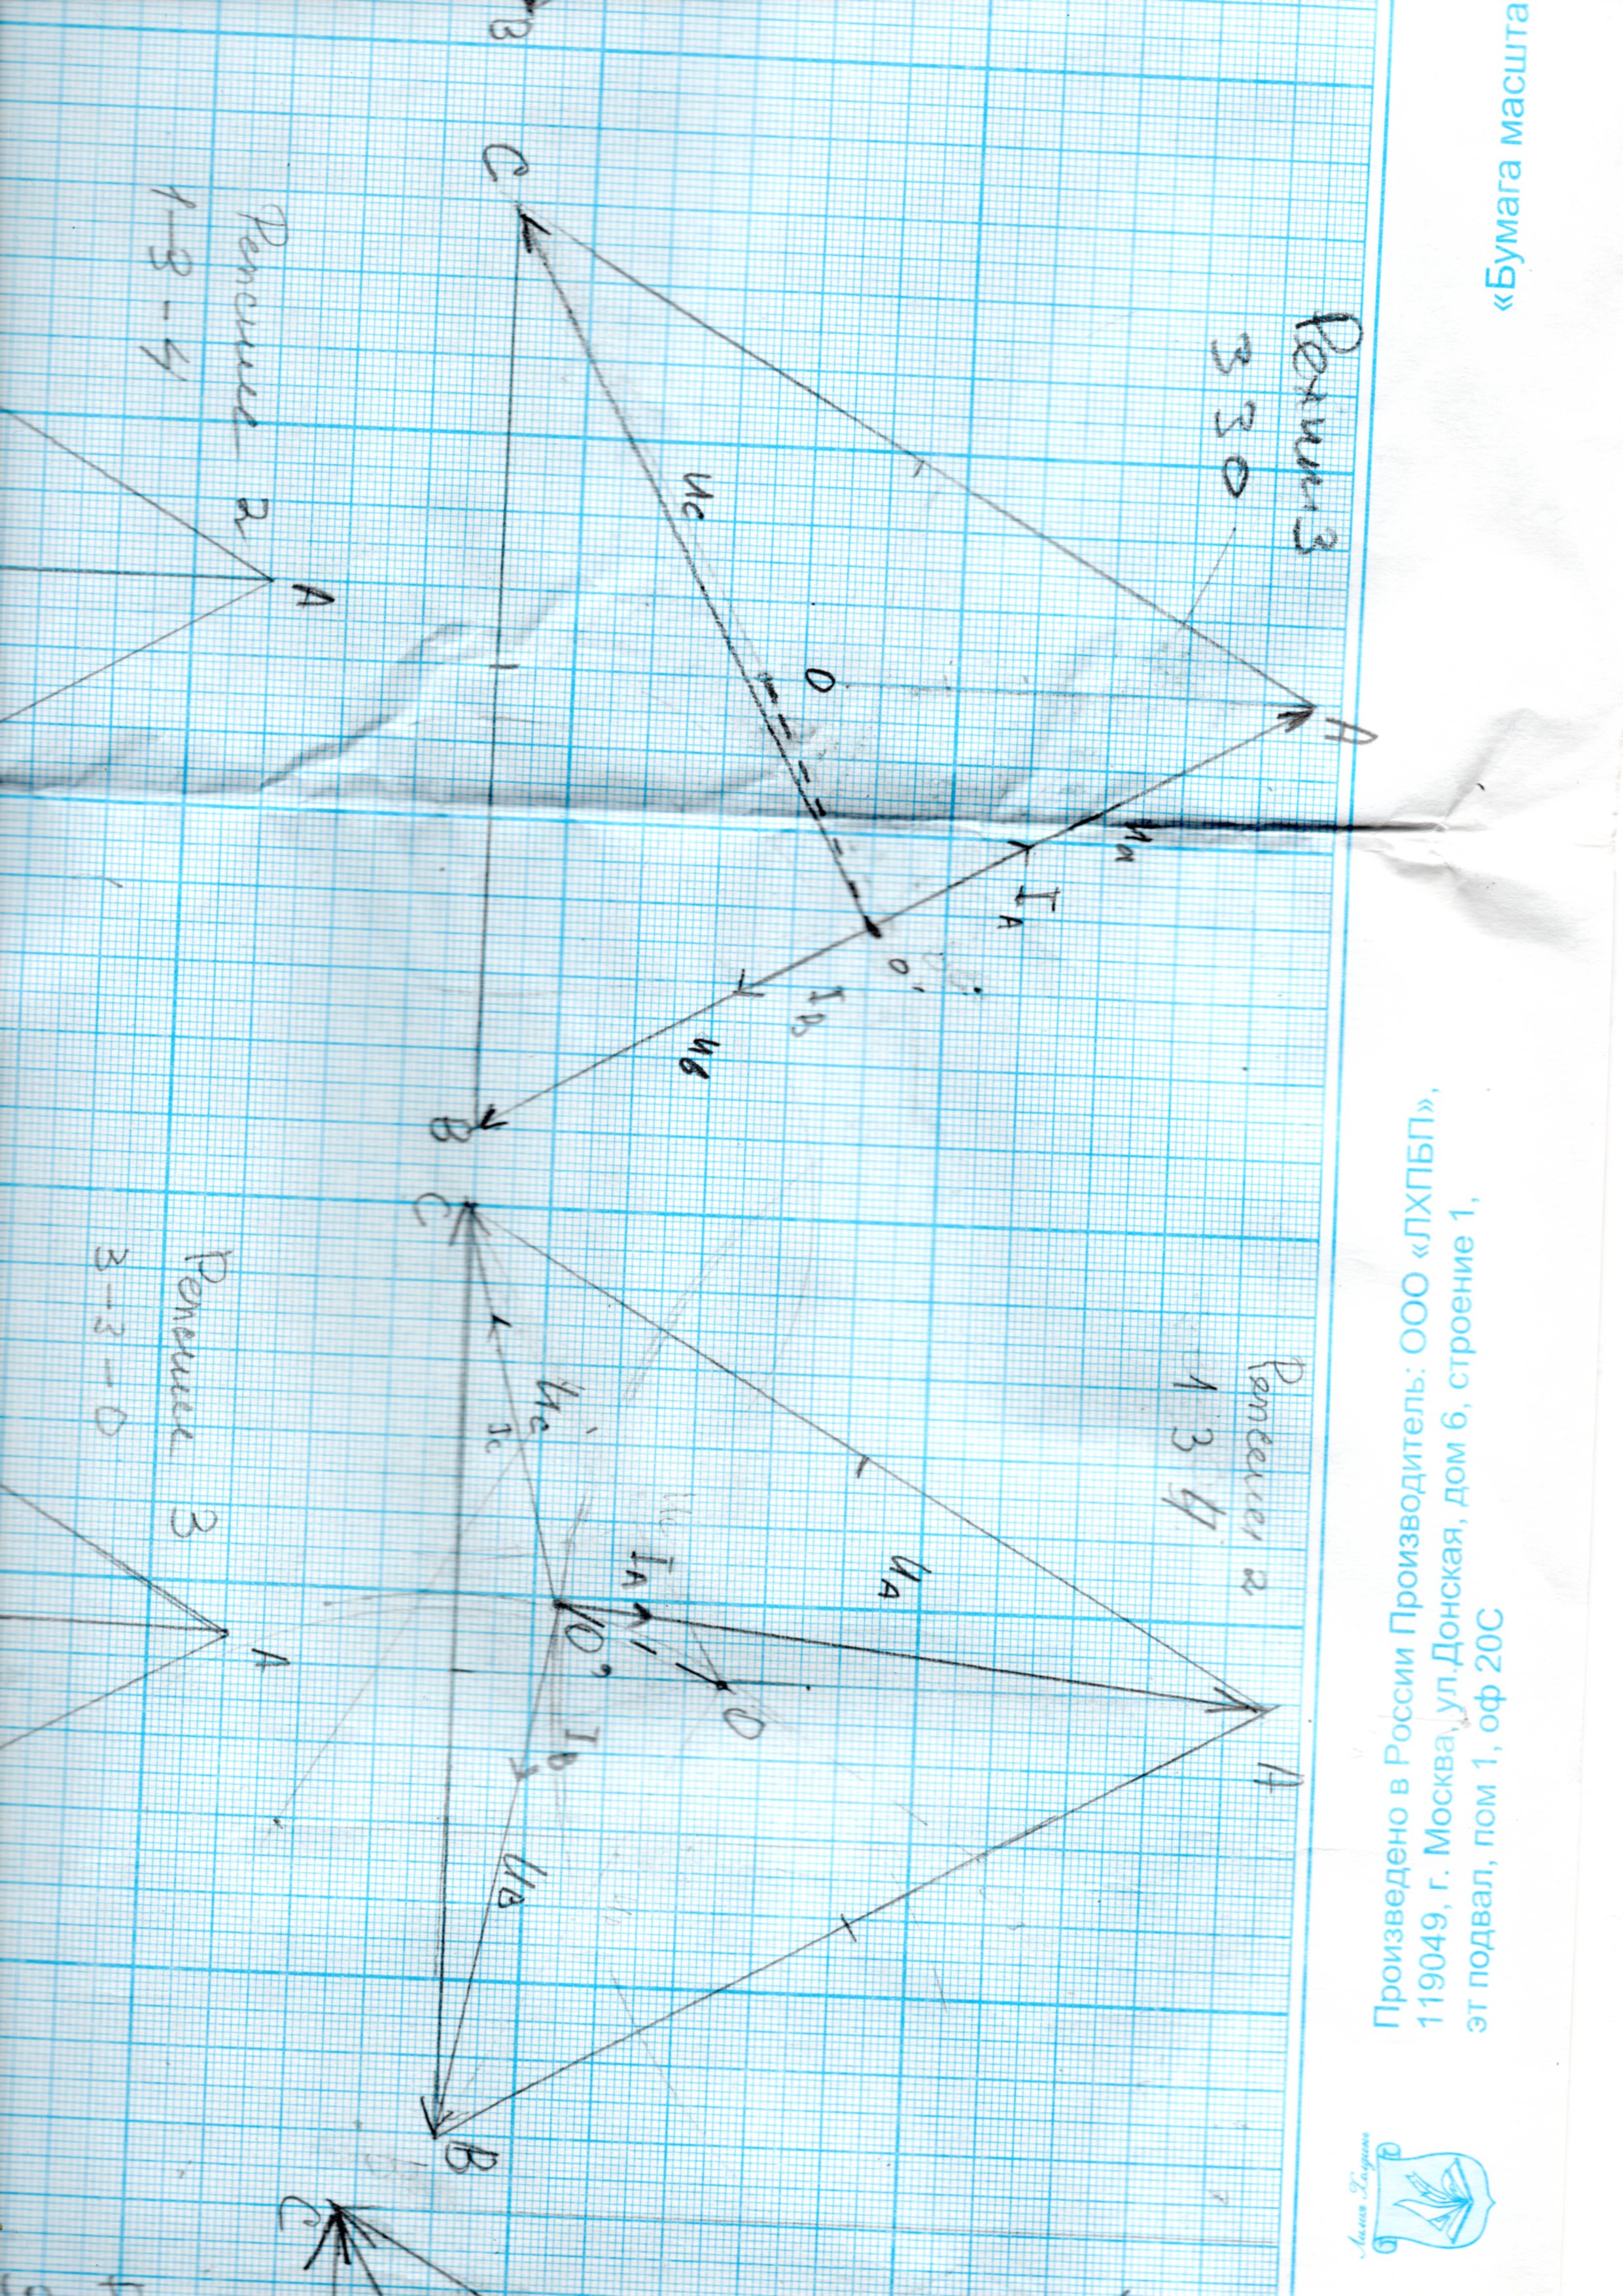 «Бумага масшта
Произведено в России Производитель: ООО «ЛХПБП»,
119049, г. Москва, ул.Донская, дом 6, строение 1,
эт подвал, пом 1, оф 20С
Режим 3
3 3 0
A
Ua
IA
O'
O
IB
UC
UB
C
B
B
Режим 2
1 3 4
A
UA
O
IA
O'
IB
UC
IC
UB
C
B
C
Режим 2
1-3-4
A
Режим 3
3-3-0
A